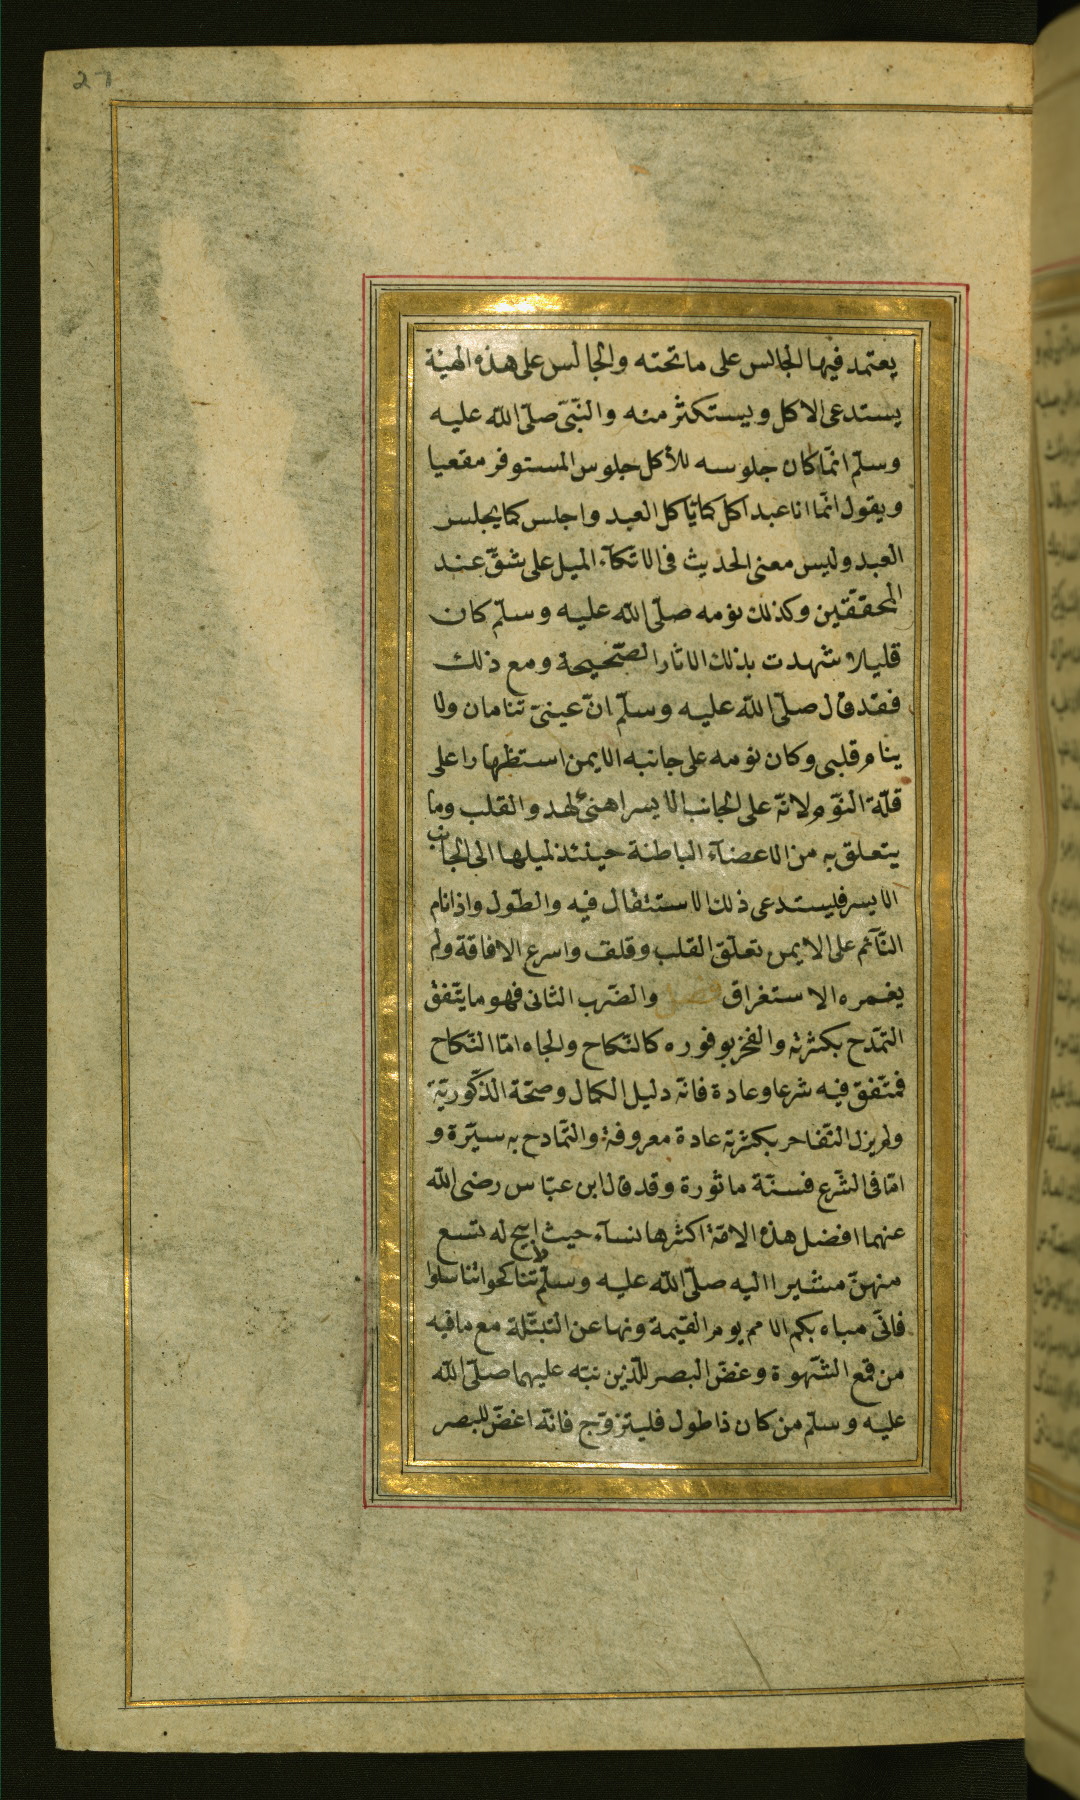 27
يعتمد فيها الجالس على ما تحته والجالس على هذه الهيئة
يستدعى الاكل ويستكثر منه والنّبىّ صلّى الله عليه
وسلّم انّما كان جلوسه للأكل جلوس المستوفر مقعيا
ويقول انّما انا عبد اكل كما يأكل العبد واجلس كما يجلس
العبد وليس معنى الحديث فى الاتكآء الميل على شقّ عند
المحققّين وكذلك نومه صلّى الله عليه وسلّم كان
قليلا شهدت بذلك الاثار الصّحيحة ومع ذلك
فقد قال صلّى الله عليه وسلّم انّ عينىّ تنامان ولا
ينام قلبى وكان نومه على جانبه الايمن استظهارا على
قلّة النّوم ولانّه على الجانب الايسر اهنئ لهدو القلب وما
يتعلق به من الاعضآء الباطنة حينئذ لميلها الى الجانب
الايسر فليستدعى ذلك الاستثقال فيه والطّول واذا نام
النّآئم على الايمن تعلّق القلب وقلق واسرع الافاقة ولم
يغمره الاستغراق فصل والضّرب الثانى فهو ما يتّفق
التمّدح بكثرته والفخر بوفوره كالنّكاح والجاه امّا النّكاح
فمتّفق فيه شرعا وعادة فانّه دليل الكمال وصحّة الذّكوريّة
ولم يزل التّفاخر بكثرته عادة معروفة والتمّادح به سيّرة و
امّا فى الشّرع فسنّة ماثورة وقد قال ابن عبّاس رضى الله
عنهما افضل هذه الامّة اكثرها نسآء حيث ابيح له تسع
منهنّ مشيرا اليه صلّى الله عليه وسلّم تناكحوا تناسلوا
فانّى مباه بكم الامم يوم القيمة ونها عن التبتّلة مع ما فيه
من قمع الشّهوة وغضّ البصر للّذين نبّه عليهما صلّى الله
عليه وسلّم من كان ذا طول فليتزوّج فانّه اغضّ للبصر